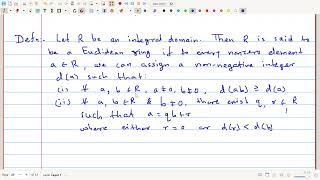 Defn:- Let R be an integral domain. Then R is said to
be a Euclidean ring if to every nonzero element
a ∈ R, we can assign a non-negative integer
d(a) such that:
(i) ∀ a, b ∈ R, a ≠ 0, b ≠ 0, d(ab) ≥ d(a)
(ii) ∀ a, b ∈ R & b ≠ 0, there exist q, r ∈ R
such that a = qb + r
where either r = 0 or d(r) < d(b)